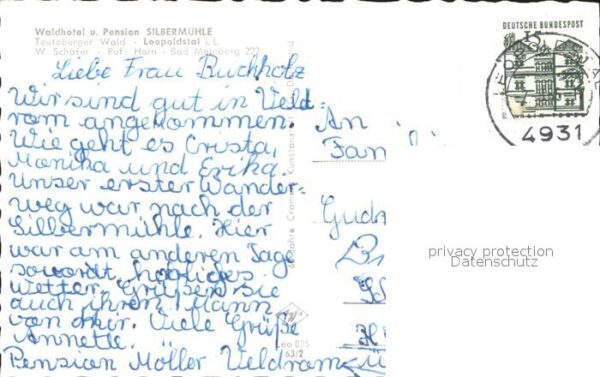 Waldhotel u. Pension SILBERMÜHLE
Teutoburger Wald - Leopoldstal i. L.
W. Schäfer - Ruf: Horn - Bad Meinberg 222
Liebe Frau Buchholz
Wir sind gut in Veld-
rom angekommen.
Wie geht es Crista,
Monika und Erika.
Unser erster Wander-
weg war nach der
Silbermühle. Hier
war am anderen Tage
sowordt herrliches
Wetter. Grüßen sie
auch ihren Mann
von mir. Viele Grüße
Annette.
Pension Möller Veldrom
Cramers Kunstanst
Leo 035
63/2
An
Fam
Gudr
DEUTSCHE BUNDESPOST
4931
privacy protection
Datenschutz